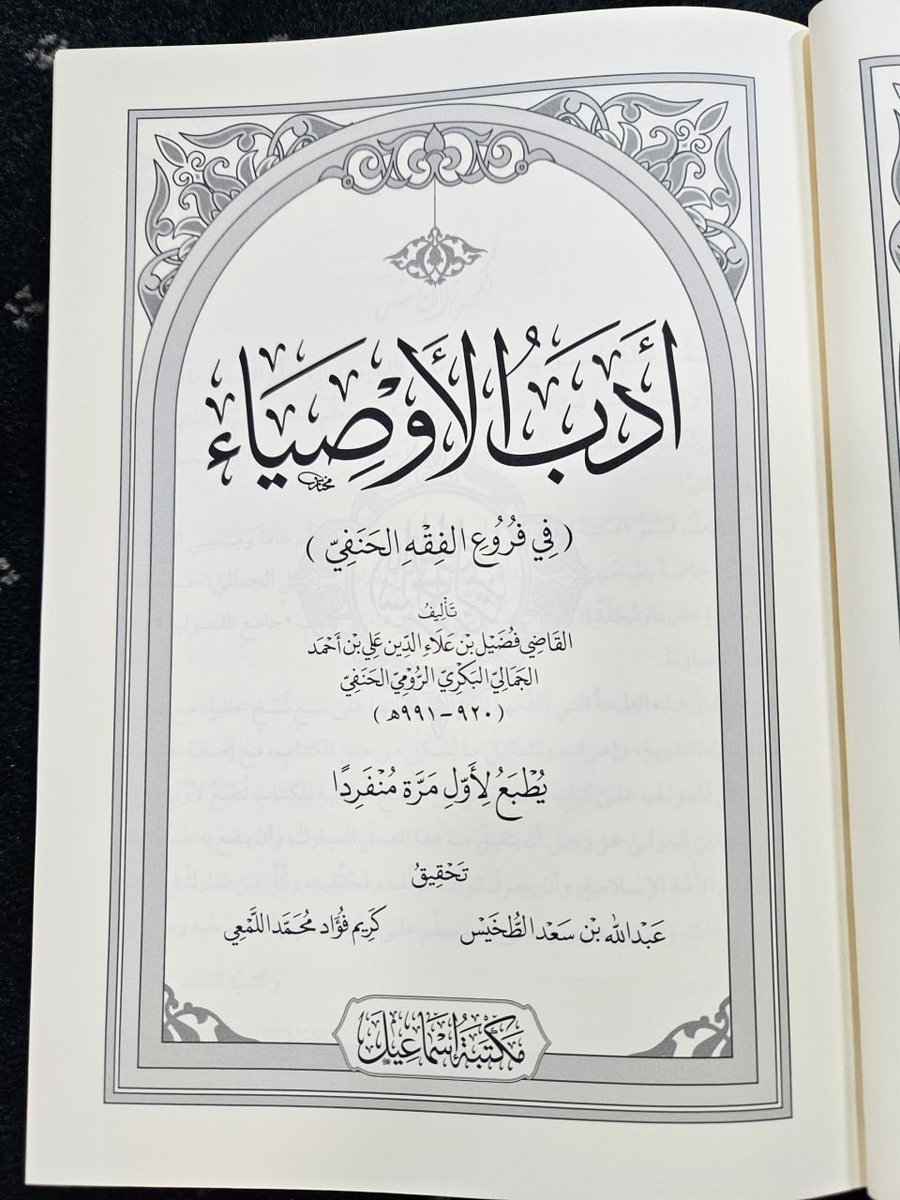 أَدَبُ الأَوْصِيَاء
( فِي فُرُوعِ الفِقْهِ الحَنَفِيّ )
تَأْلِيفُ
القَاضِي فُضَيْل بْن عَلَاءِ الدِّين عَلِي بْن أَحْمَد
الجَمَالِيّ البَكْرِيّ الرُّومِيّ الحَنَفِيّ
( ٩٢٠ - ٩٩١هـ )
يُطْبَعُ لِأَوَّلِ مَرَّة مُنْفَرِدًا
تَحْقِيقُ
عَبْدالله بْن سَعْد الطُّخَيْس كَرِيم فُؤَاد مُحَمَّد اللَّمْعِي
مَكْتَبَةُ إِسْمَاعِيل